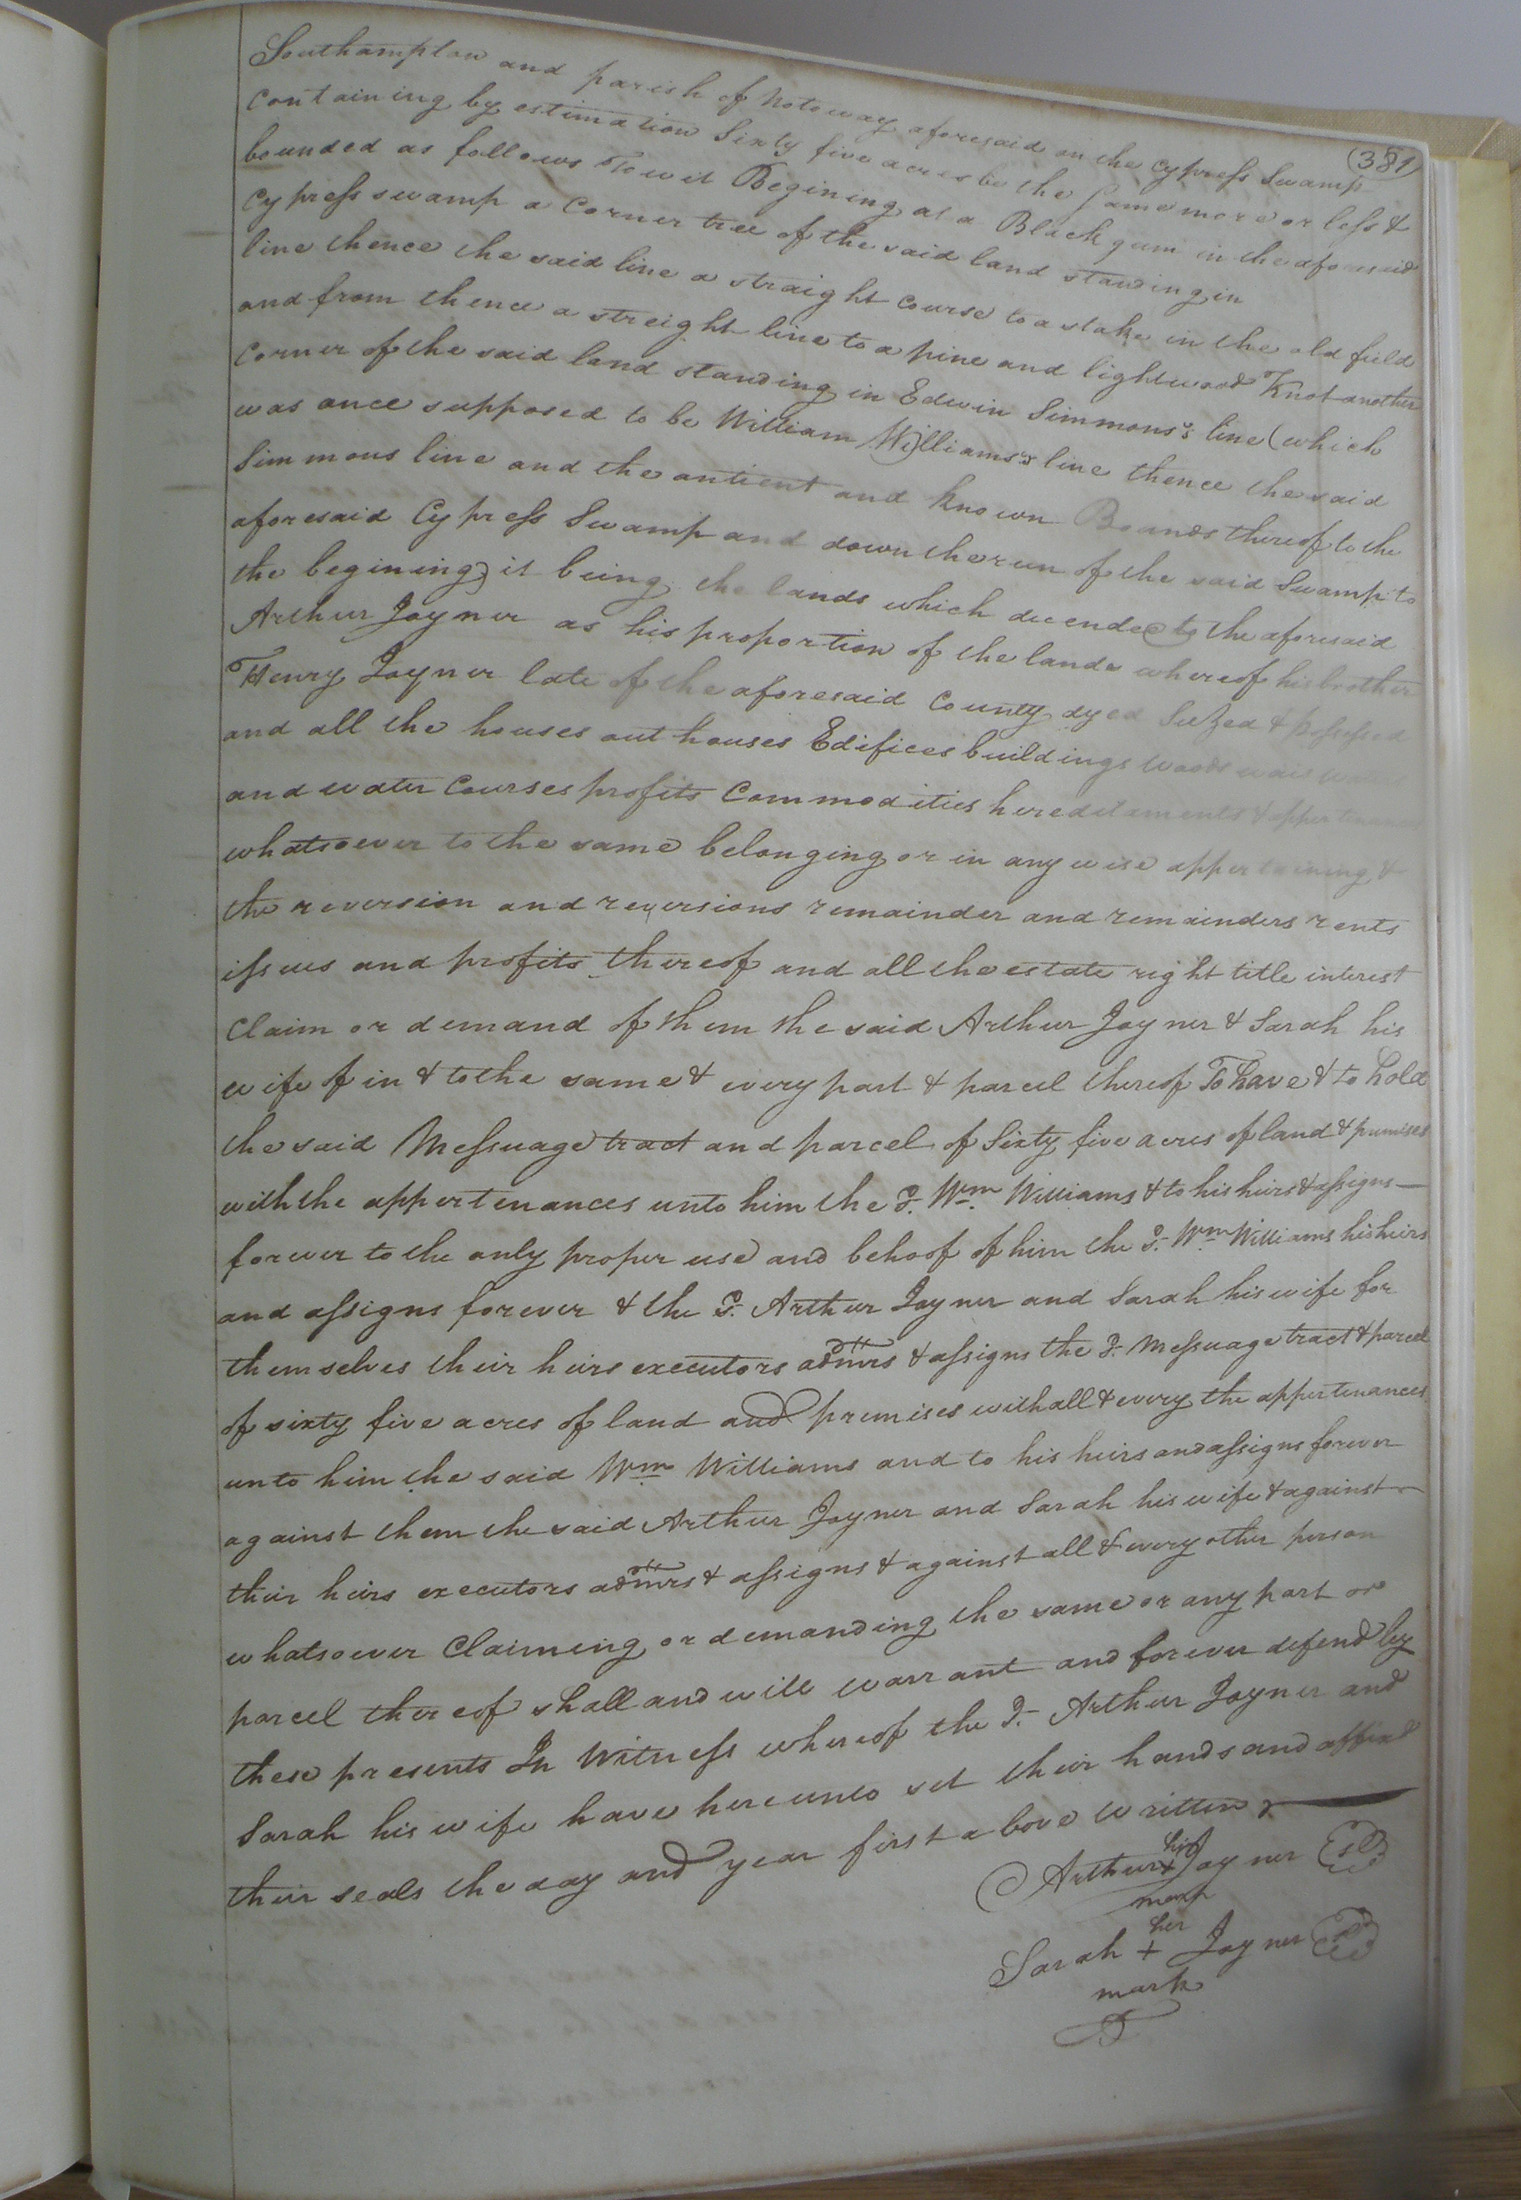 (381)
Southampton and parish of Notoway aforesaid on the Cypress Swamp
Containing by estimation Sixty five acres be the same more or less &
bounded as follows Towit Begining at a Black gum in the aforesaid
Cypress swamp a Corner tree of the said land standing in
line thence the said line a straight Course to a stake in the old field
and from thence a streight line to a pine and lightwood Knot another
Corner of the said land standing in Edwin Simmons's line (which
was once supposed to be William Williams's line thence the said
Simmons line and the antient and known Bounds thereof to the
aforesaid Cypress Swamp and down the run of the said Swamp to
the begining) it being the lands which decended to the aforesaid
Arthur Joyner as his proportion of the lands whereof his brother
Henry Joyner late of the aforesaid County dyed Seized & possessed
and all the houses out houses Edifices buildings woods wais waters
and water Courses profits Commodities hereditaments & appertenances
whatsoever to the same belonging or in any wise appertaining &
the reversion and reversions remainder and remainders rents
issues and profits thereof and all the estate right title interest
Claim or demand of them the said Arthur Joyner & Sarah his
wife of in & to the same & every part & parcel thereof To have & to hold
the said Messuage tract and parcel of Sixty five acres of land & premises
with the appertenances unto him the sd. Wm. Williams & to his heirs & assigns
forever to the only proper use and behoof of him the sd. Wm. Williams his heirs
and assigns forever & the sd. Arthur Joyner and Sarah his wife for
themselves their heirs executors admrs & assigns the sd. Messuage tract & parcel
of sixty five acres of land and premises with all & every the appertenances
unto him the said Wm. Williams and to his heirs and assigns forever
against them the said Arthur Joyner and Sarah his wife & against
their heirs executors admrs & assigns & against all & every other person
whatsoever Claiming or demanding the same or any part or
parcel thereof shall and will warrant and forever defend by
these presents In Witness whereof the sd. Arthur Joyner and
Sarah his wife have hereunto set their hands and affixd
their seals the day and year first above written
his
Arthur + Joyner
mark
her
Sarah + Joyner
mark